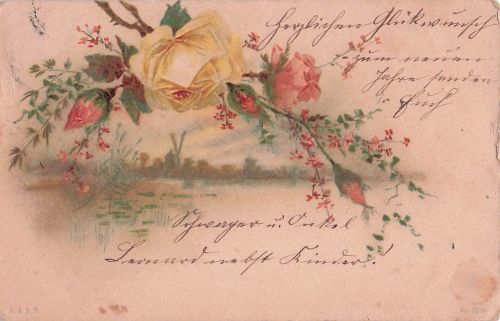 Herzlichen Glükwunsch
zum neuen
Jahre senden
Euch
Schwager u. Onkel
Leonard nebst Kinder!